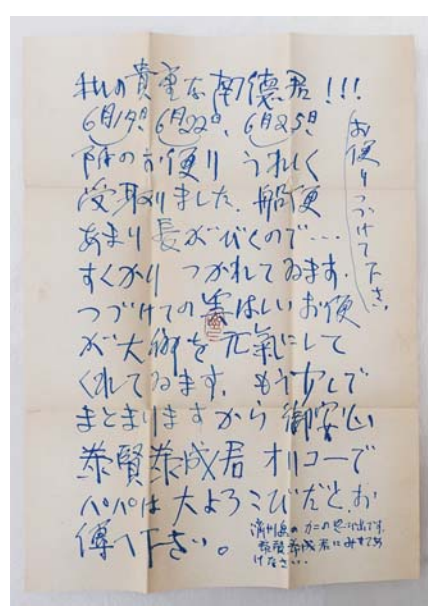 私の貴重な南德君!!!
6月19日, 6月22日, 6月25日
附のお便り うれしく
受取りました. 船便
あまり長がびくので…
すくかり つかれてゐます.
つづけての美はしいお便
が大郷を元氣にして
くれてゐます. もう少しで
まとまりますから御安心
泰賢泰成君オリコーで
パパは大よろこびだと.お
傳へ下さい。
お便りつづけて下さい
濟州島のカニの思ひ出です.
泰賢泰成君にみせてあ
げなさい…